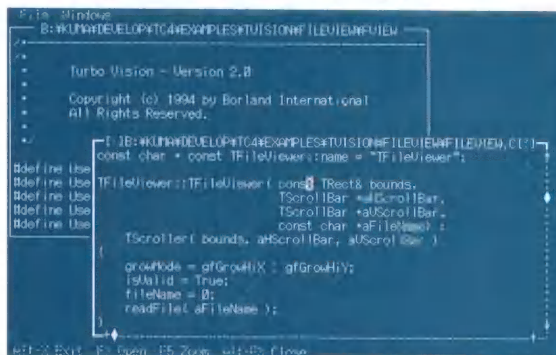 File Windows
B:¥KUMA¥DEVELOP¥TC4¥EXAMPLES¥TVISION¥FILEVIEW¥FVIEW
/*
*
* Turbo Vision - Version 2.0
*
* Copyright (c) 1994 by Borland International
* All Rights Reserved.
*
#define Use
#define Use
#define Use
#define Use
[ ]B:¥KUMA¥DEVELOP¥TC4¥EXAMPLES¥TVISION¥FILEVIEW¥FILEVIEW.C[↑]
const char * const TFileViewer::name = "TFileViewer";
TFileViewer::TFileViewer( const TRect& bounds,
TScrollBar *aHScrollBar,
TScrollBar *aVScrollBar,
const char *aFileName) :
TScroller( bounds, aHScrollBar, aVScrollBar )
{
growMode = gfGrowHiX | gfGrowHiY;
isValid = True;
fileName = 0;
readFile( aFileName );
}
Alt-X Exit F3 Open F5 Zoom Alt-F3 Close